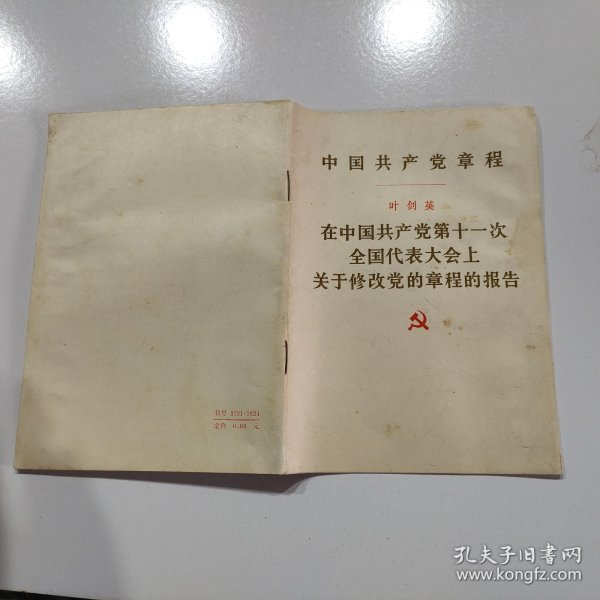 中国共产党章程
叶剑英
在中国共产党第十一次
全国代表大会上
关于修改党的章程的报告
书号 3001·1624
定价 0.08 元
孔夫子旧书网
www.kongfz.com